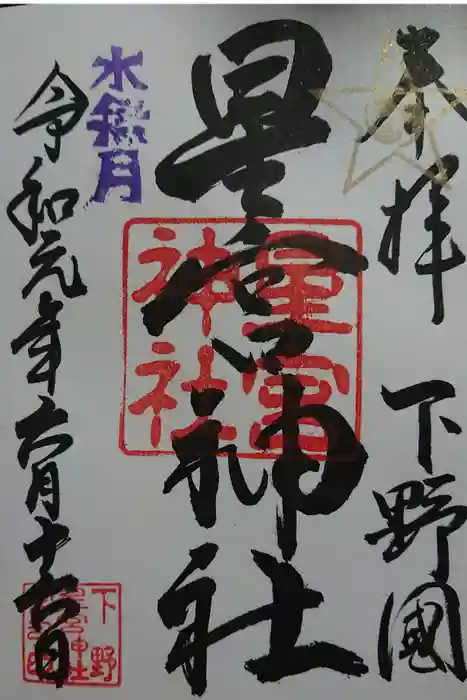 奉拝 下野國
星宮神社
星宮
神社
水無月
令和元年六月十六日
下野
星宮神社